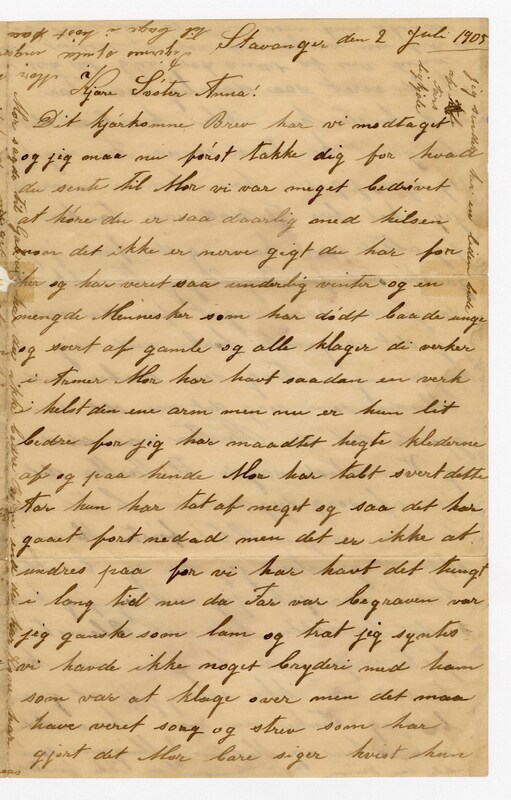 Stavanger den 2 Juli 1905
Kjære Søster Anna!
Dit kjærkomne Brev har vi modtaget
og jeg maa nu først takke dig for hvad
du sente til Mor vi var meget bedrøvet
at høre du er saa daarlig med helsen
mon det ikke er nerve gigt du har for
her og har veret saa underlig vinter og en
mengde Mennesker som har dødt baade unge
og svert af gamle og alle klager di verker
i Armer Mor har havt saadan en verk
i helst den ene arm men nu er hun lit
bedre for jeg har maadtet hegte klederne
af og paa hende Mor har tabt svert dette
Aar hun har tat af meget og saa det har
gaaet fort nedad men det er ikke at
undres paa for vi har havt det tungt
i lang tid nu da Far var begraven var
jeg ganske som lam og træt jeg syntes
vi havde ikke noget bryderi med ham
som var at klage over men det maa
have veret sorg og strev som har
gjort det Mor bare siger hvist hun
jeg en liden
Mor sagde til